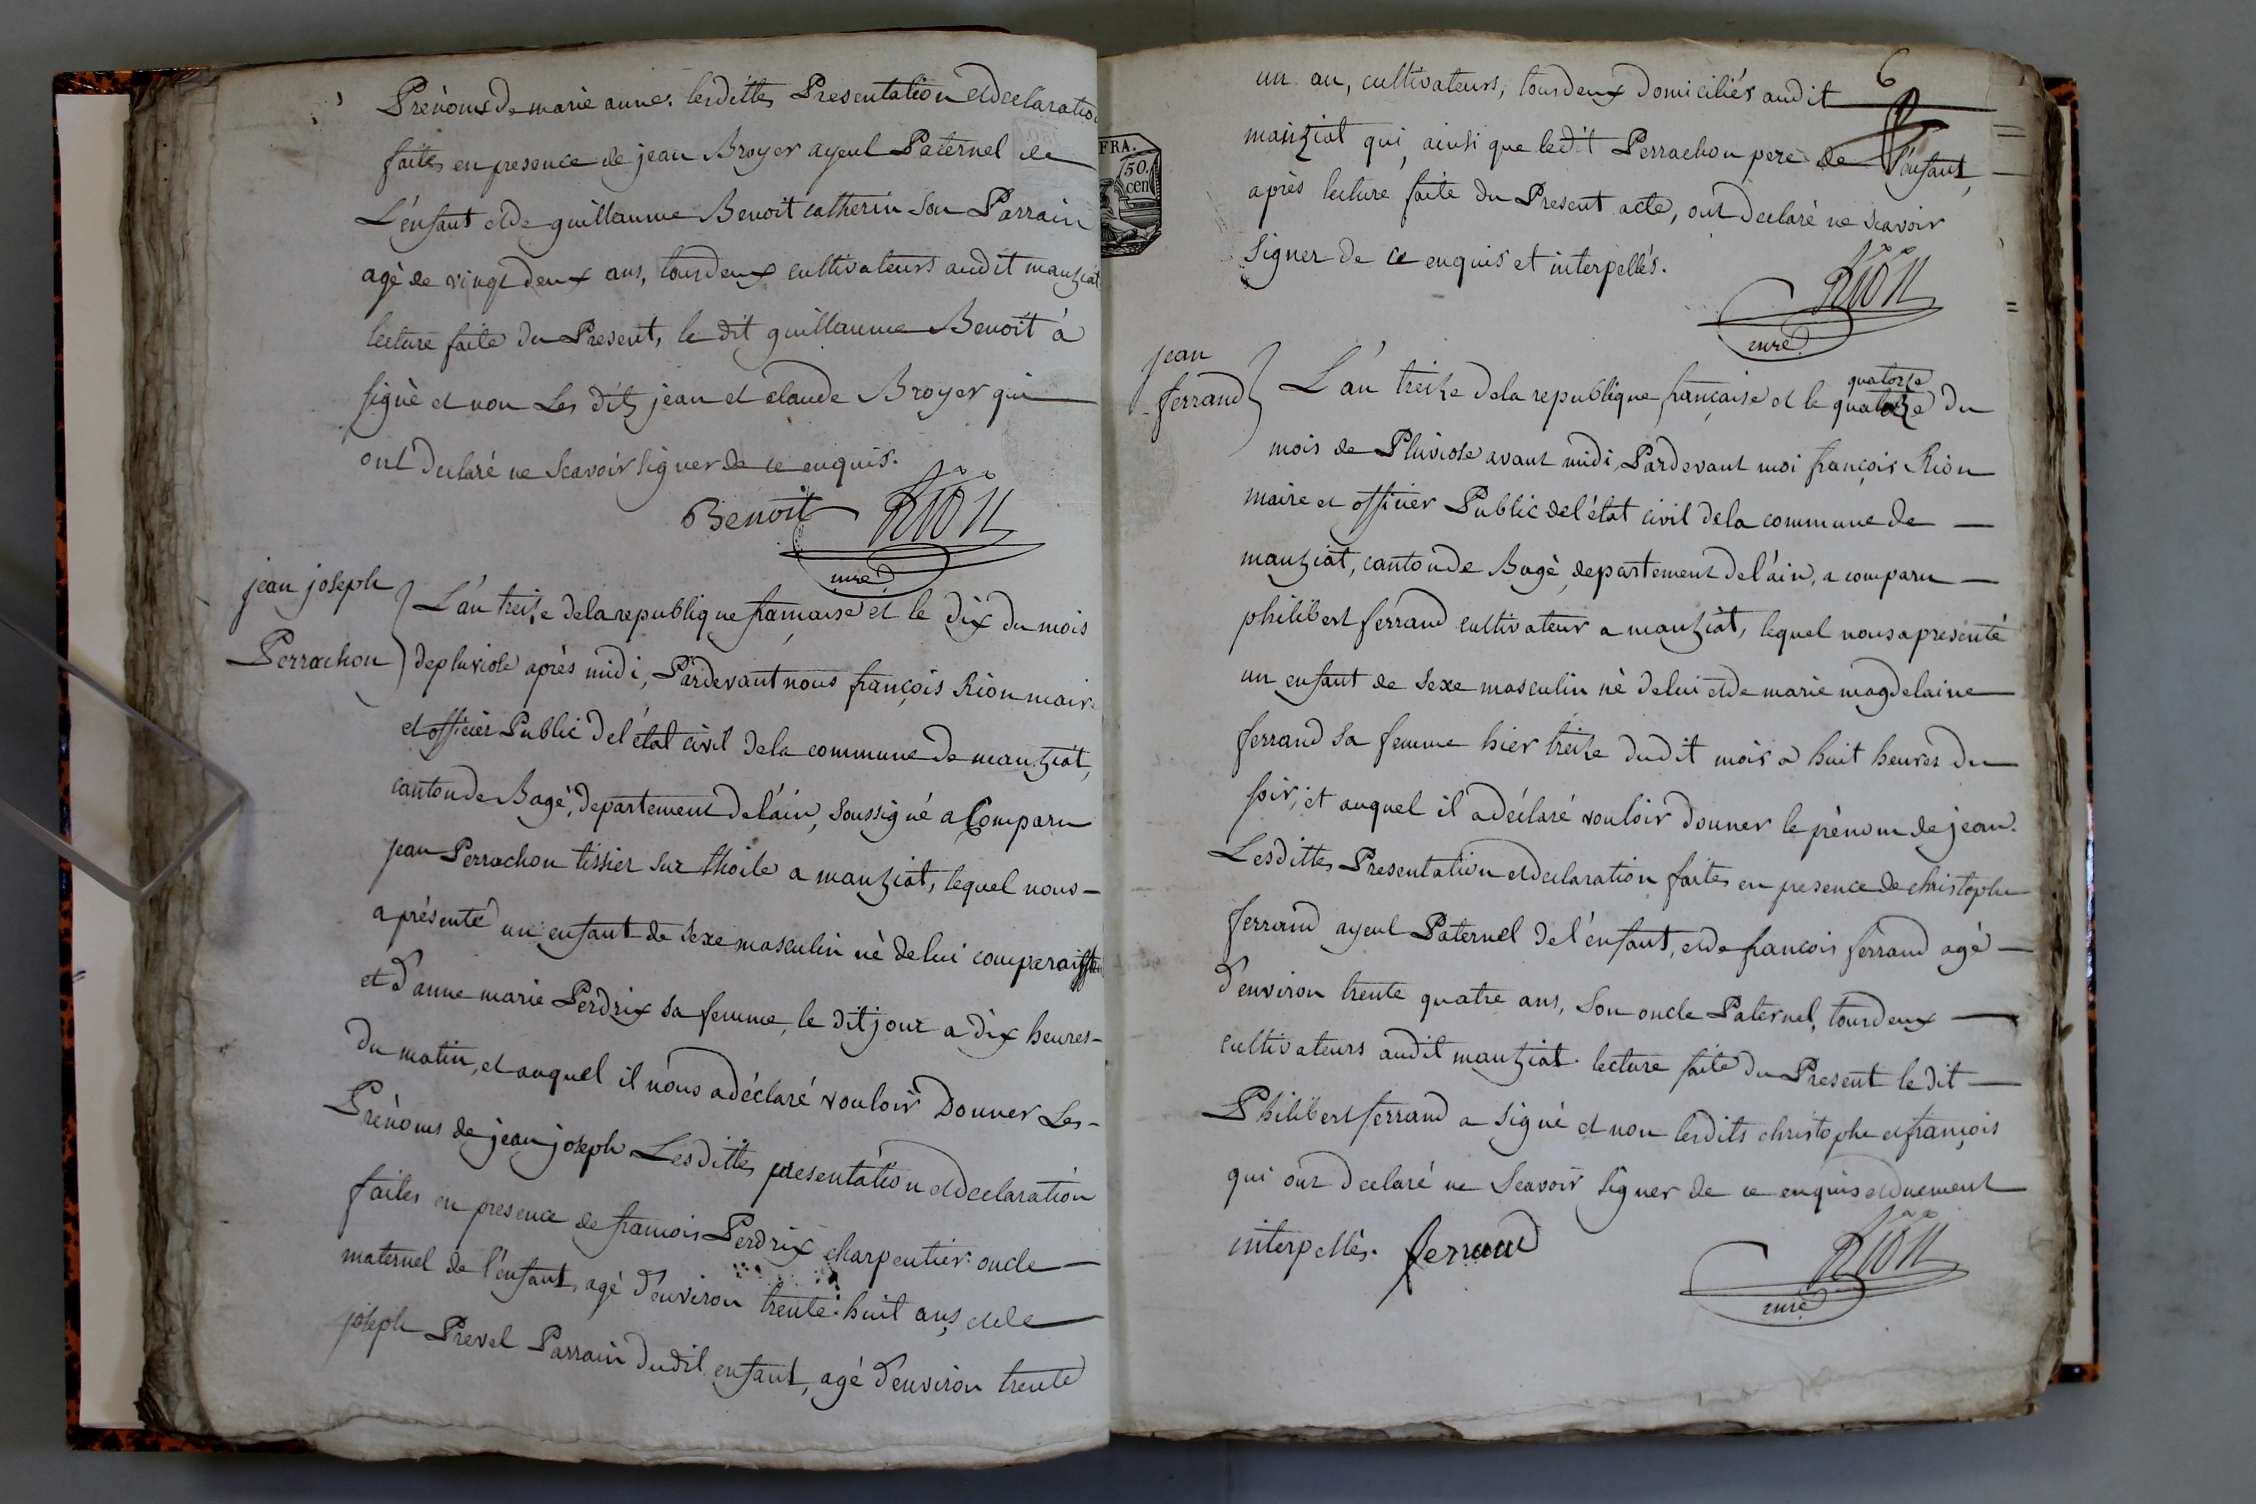 Prénoms de marie anne. lesdittes Presentation et declaration
faites en presence de jean Broyer ayeul Paternel de
L'enfant et de guillaume Benoit catherin son Parrain
agé de vingt deux ans, tous deux cultivateurs audit manziat
lecture faite du Present, le dit guillaume Benoit à
signé et non Les dits jean et claude Broyer qui
ont declaré ne scavoir signer de ce enquis.
Benoit Rion
mre
jean joseph
Perrachon
L'an treize de la republique francaise et le dix du mois
de pluviose après midi, Pardevant nous françois Rion maire
et officier Public de l'état civil de la commune de manziat,
canton de Bagé, departement de l'ain, soussigné a Comparu
jean Perrachon tissier sur thoile a manziat, lequel nous
a présenté un enfant de sexe masculin né de lui comparaissant
et d'anne marie Perdrix sa femme, le dit jour a dix heures
du matin, et auquel il nous a déclaré vouloir Donner Les
Prénoms de jean joseph Lesdittes presentation et declaration
faites en presence de francois Perdrix charpentier oncle
maternel de l'enfant, agé d'environ trente huit ans, et de
joseph Prevel Parrain dudit enfant, agé d'environ trente
6
FRA.
50.
cen
un an, cultivateurs, tous deux Domiciliés audit
manziat qui, ainsi que ledit Perrachon pere de l'enfant,
après lecture faite du Present acte, ont declaré ne scavoir
signer de ce enquis et interpellés.
Rion
mre
jean
ferrand
L'an treize de la republique francaise et le quatorze quatorze du
mois de Pluviose avant midi, Pardevant moi françois Rion
maire et officier Public de l'état civil de la commune de
manziat, canton de Bagé, departement de l'ain, a comparu
philibert ferrand cultivateur a manziat, lequel nous a presenté
un enfant de sexe masculin né de lui et de marie magdelaine
ferrand sa femme hier treize dudit mois a huit heures du
soir, et auquel il a déclaré vouloir donner le prénom de jean.
Lesdittes Presentation et declaration faites en presence de christophe
ferrand ayeul Paternel de l'enfant, et de francois ferrand agé
d'environ trente quatre ans, son oncle Paternel, tous deux
cultivateurs audit manziat. lecture faite du Present le dit
Philibert ferrand a signé et non lesdits christophe et françois
qui ont declaré ne scavoir signer de ce enquis et duement
interpellés. ferrand
Rion
mre